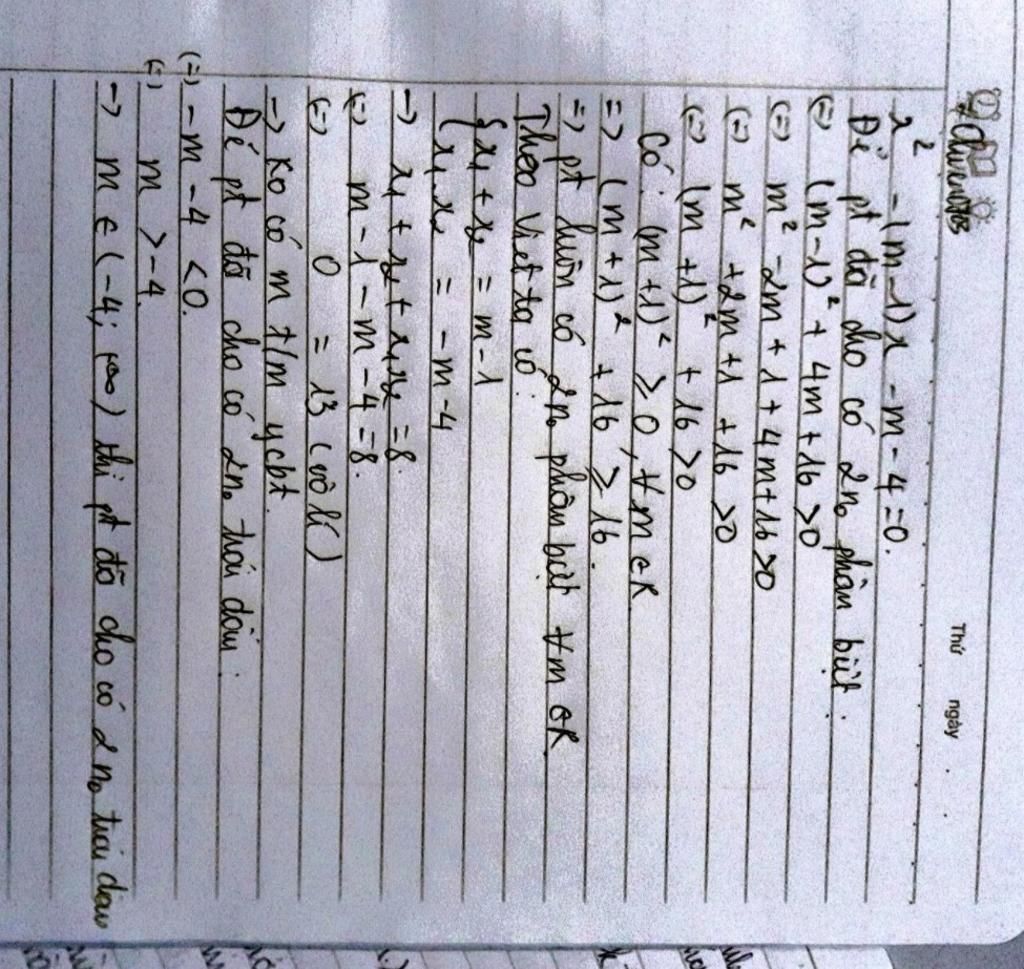 Thứ ngày
x² - (m-1)x - m - 4 = 0.
Để pt đã cho có 2n₀ phân biệt :
(=) (m-1)² + 4m + 16 > 0
(=) m² - 2m + 1 + 4m + 16 > 0
(=) m² + 2m + 1 + 16 > 0
(=) (m + 1)² + 16 > 0
Có : (m + 1)² ≥ 0, ∀m ∈ R
=> (m + 1)² + 16 ≥ 16.
=> pt luôn có 2n₀ phân biệt ∀m ∈ R
Theo Viet ta có :
{ x₁ + x₂ = m - 1
x₁ x₂ = -m - 4
→ x₁ + x₂ + x₁x₂ = 8.
(=) m - 1 - m - 4 = 8.
(=) 0 = 13 (vô lí)
→ Ko có m t/m ycbt.
Để pt đã cho có 2n₀ trái dấu :
(=) -m - 4 < 0.
(=) m > -4.
→ m ∈ (-4; +∞) thì pt đã cho có 2 n₀ trái dấu